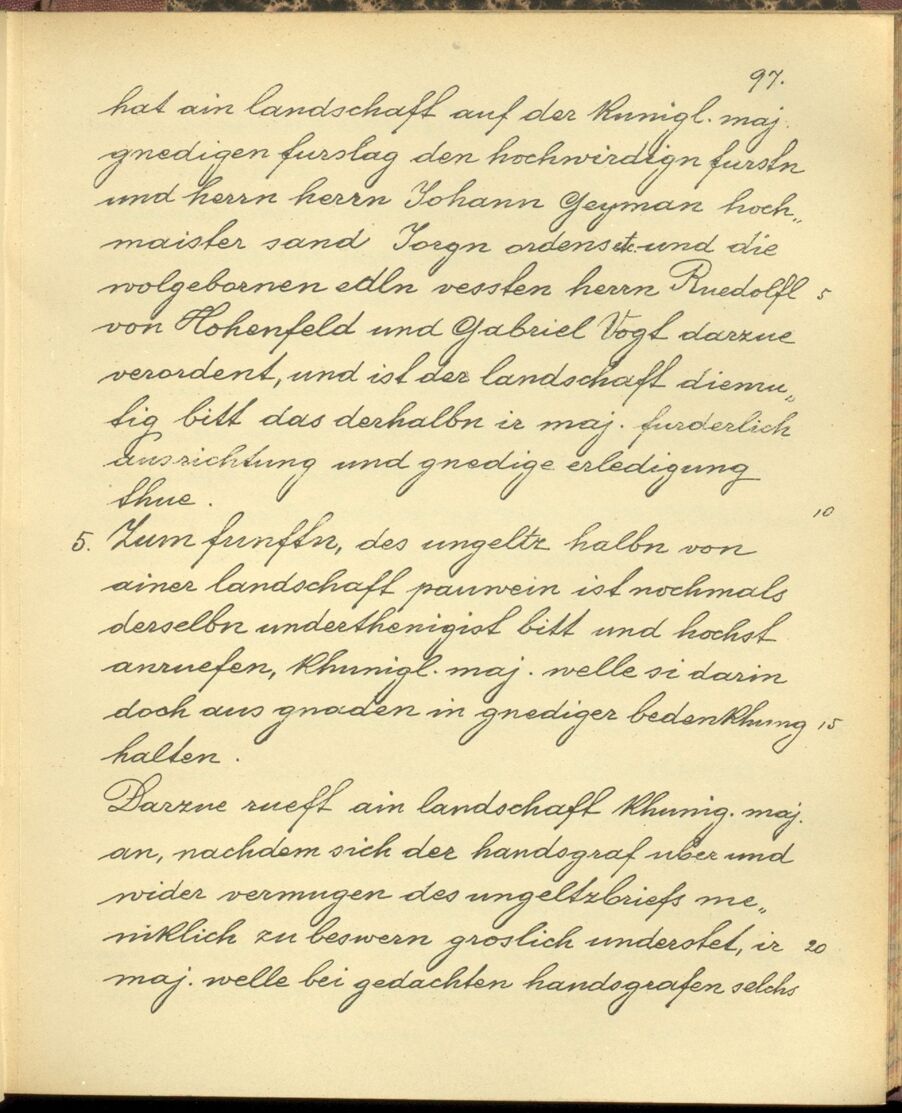 97.
hat ain landschaft auf der kunigl. maj.
gnedigen furslag den hochwirdign furstn
und herrn herrn Johann Geyman hoch„
maister sand Jorgn ordens etc. und die
wolgebornen edln vessten herrn Ruedolff 5
von Hohenfeld und Gabriel Vogt darzue
verordent, und ist der landschaft diemu„
tig bitt das derhalbn ir maj. furderlich
ausrichtung und gnedige erledigung
thue. 10
5. Zum funftn, des ungeltz halbn von
ainer landschaft pauwein ist nochmals
derselbn underthenigist bitt und hochst
anruefen, khunigl. maj. welle si darin
doch aus gnaden in gnediger bedenkhung 15
halten.
Darzue rueft ain landschaft khunig. maj.
an, nachdem sich der handsgraf uber und
wider vermugen des ungeltzbriefs me„
niklich zu beswern groslich understet, ir 20
maj. welle bei gedachten handsgrafen selchs